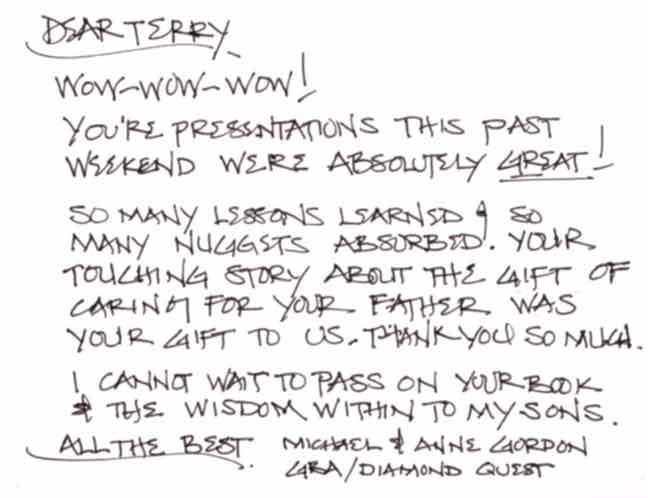 DEAR TERRY,
WOW-WOW-WOW!
YOU'RE PRESENTATIONS THIS PAST
WEEKEND WERE ABSOLUTELY GREAT!
SO MANY LESSONS LEARNED & SO
MANY NUGGETS ABSORBED. YOUR
TOUCHING STORY ABOUT THE GIFT OF
CARING FOR YOUR FATHER WAS
YOUR GIFT TO US. THANK YOU SO MUCH.
I CANNOT WAIT TO PASS ON YOUR BOOK
& THE WISDOM WITHIN TO MY SONS.
ALL THE BEST. MICHAEL & ANNE GORDON
GRA/DIAMOND QUEST